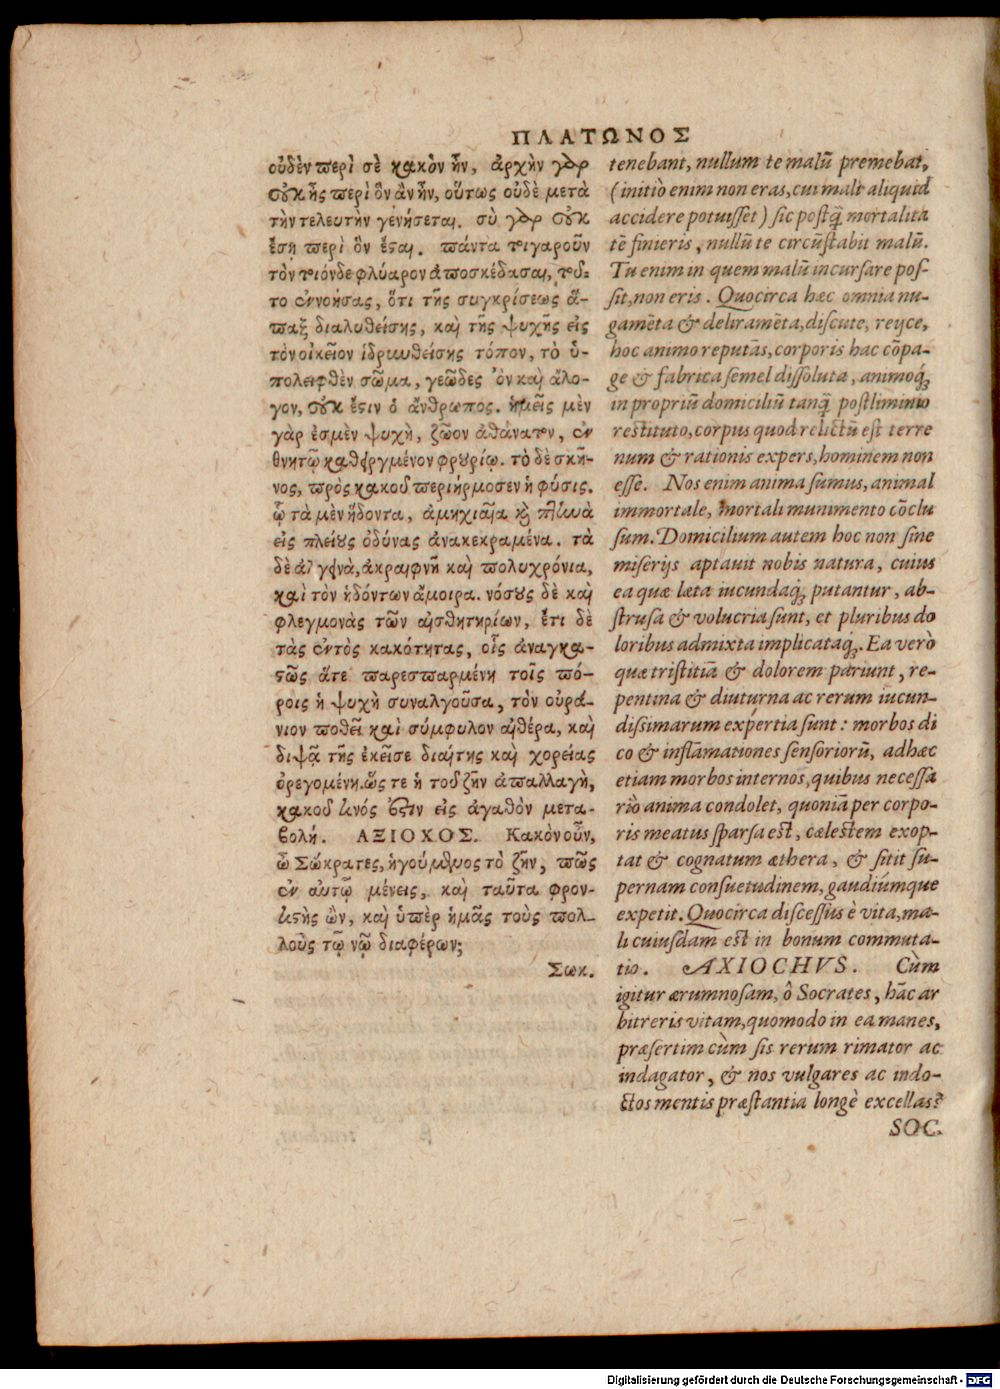 ΠΛΑΤΩΝΟΣ
οὐδὲν περὶ σὲ κακὸν ἦν, ἀρχὴν γὸρ
σὐκ ἦς περὶ ὃν ἂν ἦν, οὕτως οὐδὲ μετὰ
τὴν τελευτὴν γενήσεται. σὺ γὸρ σὐκ
ἔση περὶ ὃν ἔσται. πάντα τοιγαροῦν
τὸν τοιόνδε φλύαρον ἀποσκέδασαι, τοῦ-
το ἐννοήσας, ὅτι τῆς συγκρίσεως ἅ-
παξ διαλυθείσης, καὶ τῆς ψυχῆς εἰς
τὸν οἰκεῖον ἱδρυνθείσης τόπον, τὸ ὑ-
πολειφθὲν σῶμα, γεῶδες ὂν καὶ ἄλο-
γον, σὐκ ἔστιν ὁ ἄνθρωπος. ἡμεῖς μὲν
γὰρ ἐσμὲν ψυχὴ, ζῶον ἀθάνατον, ἐν
θνητῷ καθειργμένον φρουρίῳ. τὸ δὲ σκῆ-
νος, πρὸς κακοῦ περιήρμοσεν ἡ φύσις.
ᾧ τὰ μὲν ἥδοντα, ἀμηχιαῖα καὶ πτηνὰ
εἰς πλείους ὀδύνας ἀνακεκραμένα. τὰ
δὲ ἀλγεινὰ, ἀκραιφνῆ καὶ πολυχρόνια,
καὶ τὸν ἡδόντων ἄμοιρα. νόσους δὲ καὶ
φλεγμονὰς τῶν αἰσθητηρίων, ἔτι δὲ
τὰς ἐντὸς κακότητας, οἷς ἀναγκα-
στῶς ἅτε παρεσπαρμένη τοῖς πό-
ροις ἡ ψυχὴ συναλγοῦσα, τὸν οὐρά-
νιον ποθεῖ καὶ σύμφυλον αἰθέρα, καὶ
διψᾷ τῆς ἐκεῖσε διαίτης καὶ χορείας
ὀρεγομένη. ὥς τε ἡ τοῦ ζῆν ἀπαλλαγὴ,
κακοῦ τινός ἐστιν εἰς ἀγαθὸν μετα-
βολή. ΑΞΙΟΧΟΣ. Κακὸν οὖν,
ὦ Σώκρατες, ἡγούμενος τὸ ζῆν, πῶς
ἐν αὐτῷ μένεις, καὶ ταῦτα φρον-
τιστὴς ὢν, καὶ ὑπὲρ ἡμᾶς τοὺς πολ-
λοὺς τῷ νῷ διαφέρων;
Σωκ.
tenebant, nullum te malũ premebat,
(initio enim non eras, cui mali aliquid
accidere potuisset) sic postq̃ mortalita
tẽ finieris, nullũ te circũstabit malũ.
Tu enim in quem malũ incursare pos-
sit, non eris. Quocirca hæc omnia nu-
gamẽta & deliramẽta, discute, reijce,
hoc animo reputãs, corporis hac cõpa-
ge & fabrica semel dissoluta, animoq́;
in propriũ domiciliũ tanq̃ postliminio
restituto, corpus quod relictũ est terre
num & rationis expers, hominem non
esse. Nos enim anima sumus, animal
immortale, mortali munimento cõclu
sum. Domicilium autem hoc non sine
miserijs aptauit nobis natura, cuius
ea quæ læta iucundaq́; putantur, ab-
strusa & volucria sunt, et pluribus do
loribus admixta implicataq́;. Ea verò
quæ tristitiã & dolorem pariunt, re-
pentina & diuturna ac rerum iucun-
dissimarum expertia sunt: morbos di
co & inflãmationes sensoriorũ, adhæc
etiam morbos internos, quibus necessa
riò anima condolet, quoniã per corpo-
ris meatus sparsa est, cælestem exop-
tat & cognatum æthera, & sitit su-
pernam consuetudinem, gaudiúmque
expetit. Quocirca discessus è vita, ma-
li cuiusdam est in bonum commuta-
tio. AXIOCHVS. Cùm
igitur ærumnosam, ô Socrates, hãc ar
bitreris vitam, quomodo in ea manes,
præsertim cùm sis rerum rimator ac
indagator, & nos vulgares ac indo-
ctos mentis præstantia longè excellas?
SOC.
Digitalisierung gefördert durch die Deutsche Forschungsgemeinschaft - DFG